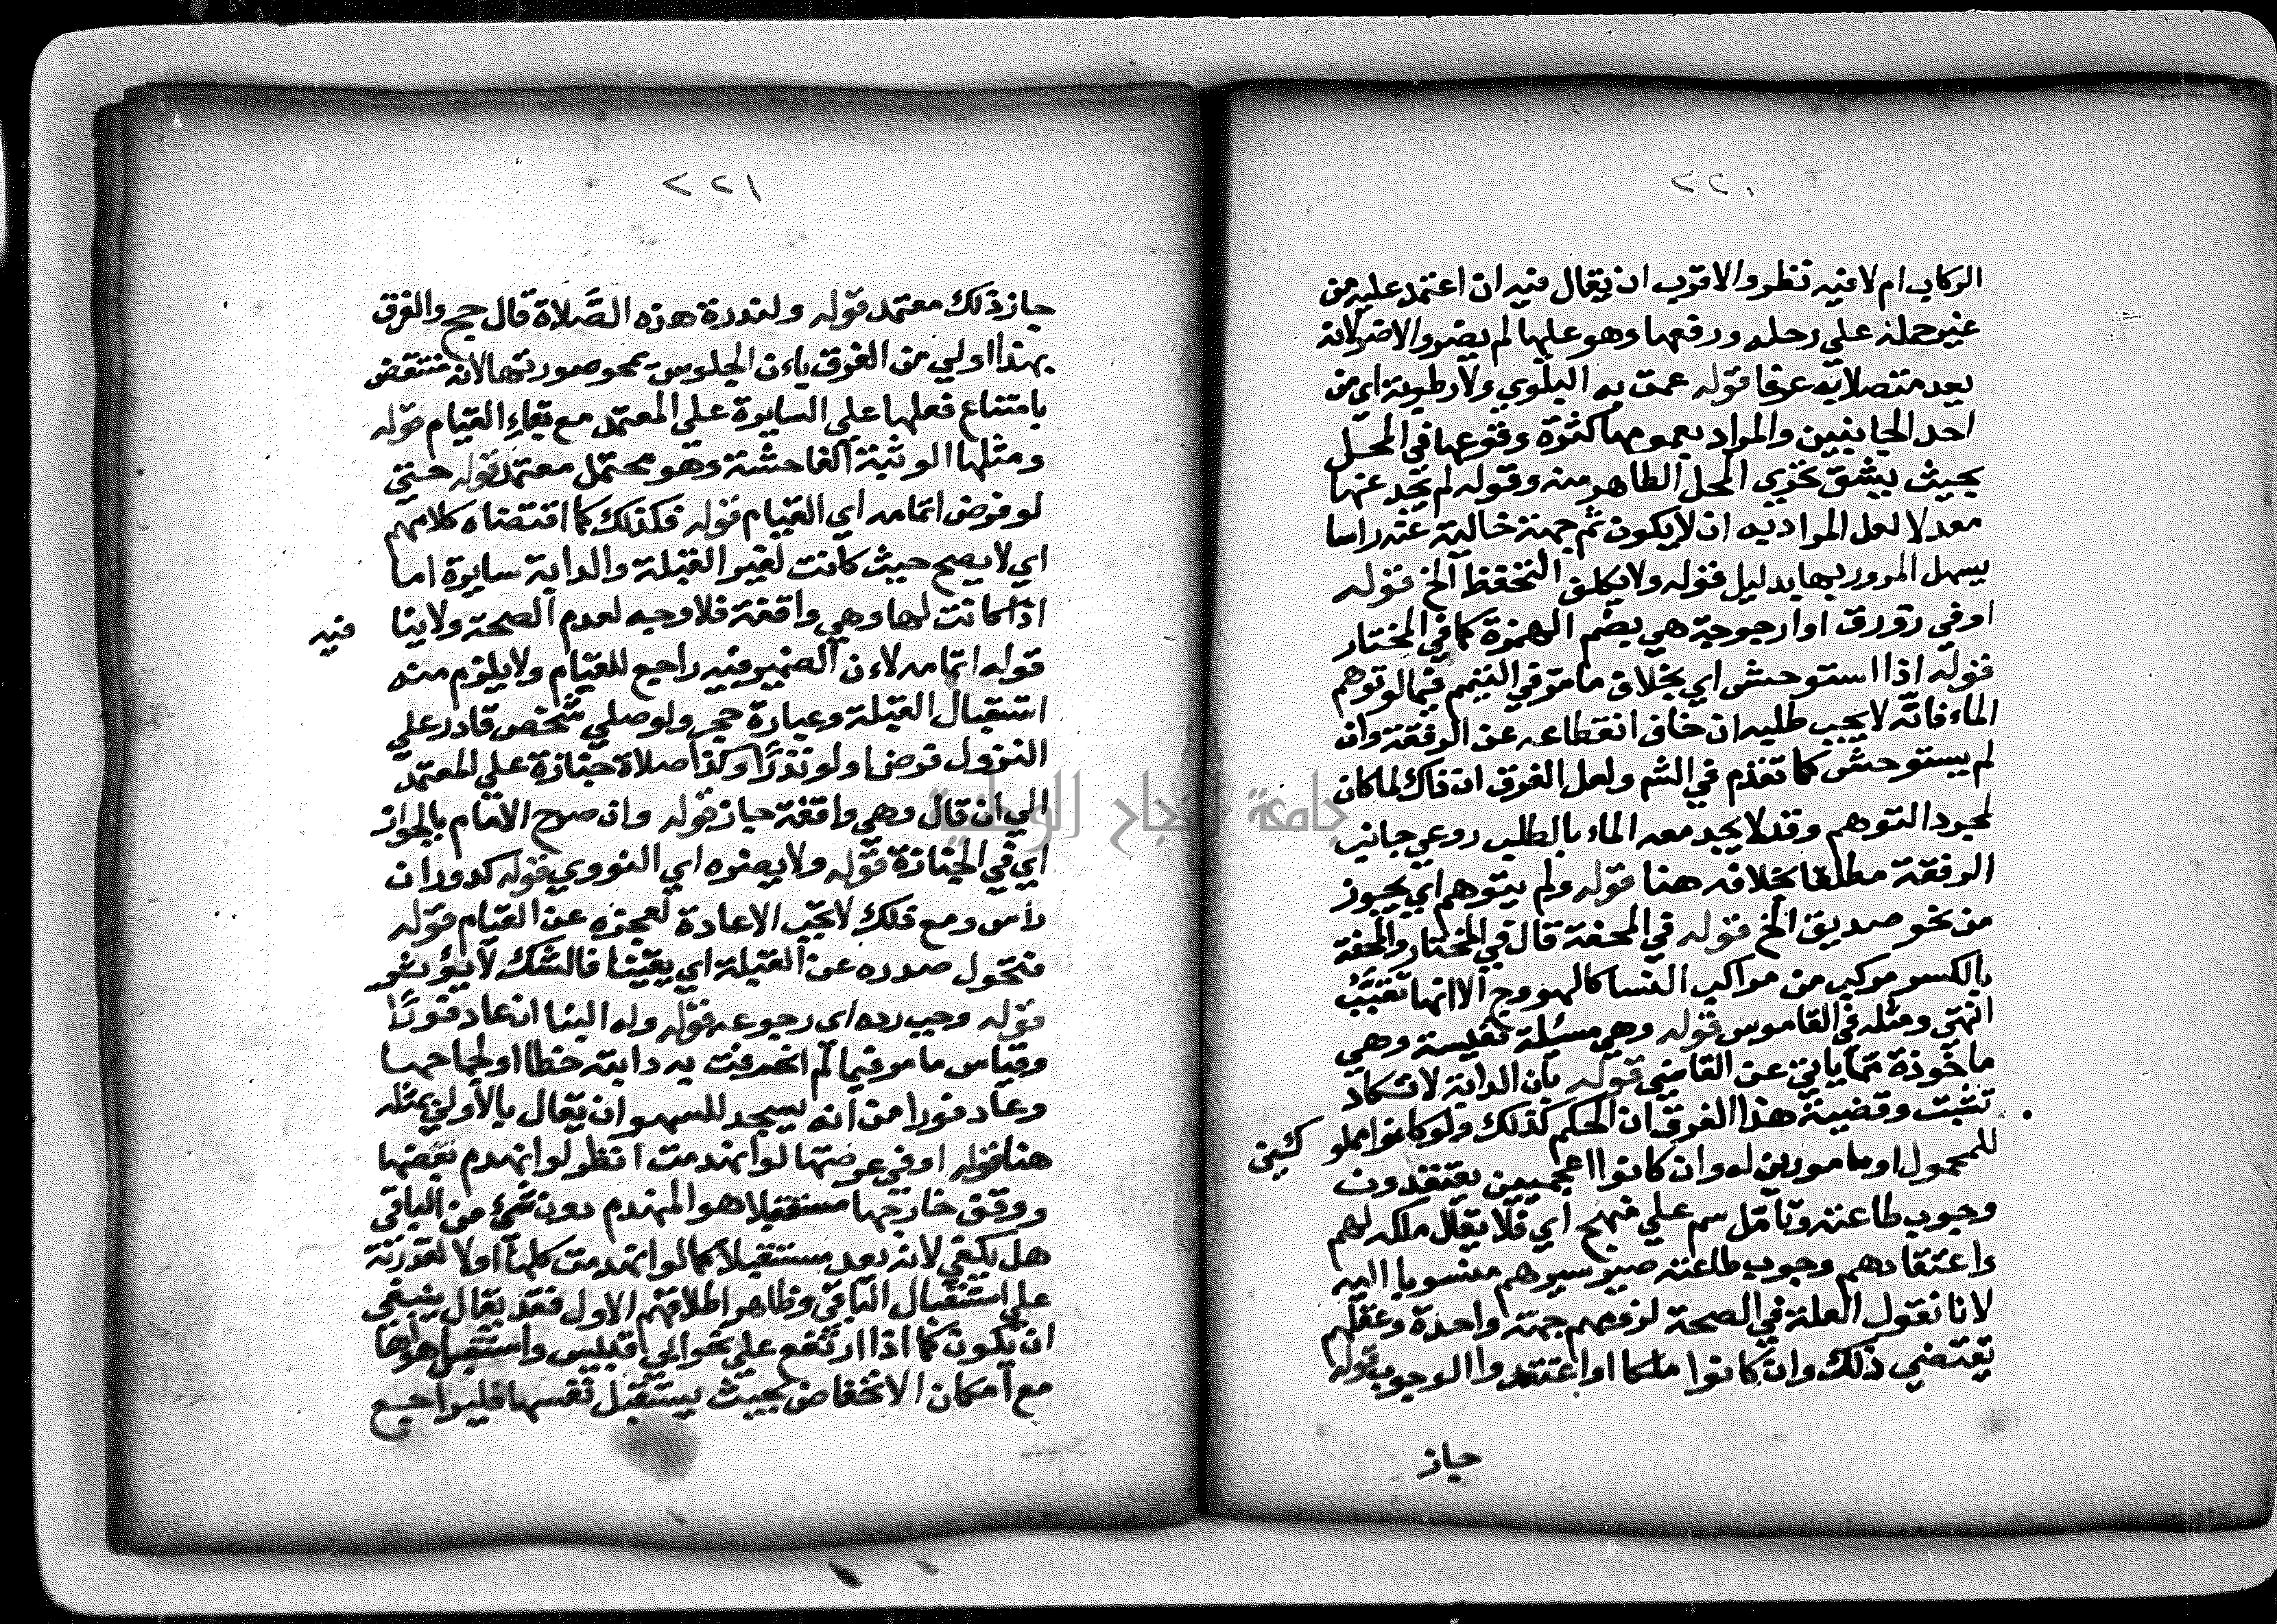 ٢٢٠
الركاب ام لا فيه نظر والاقرب ان يقال فيه ان اعتمد عليه من
غير حمله علي رحله ورفعها وهو عليها لم يضر والا ضر لانه
يعد متصلا به عرفا قوله عمت به البلوي ولا رطوبة اي من
احد الجانبين والمراد بعمومها كثرة وقوعها في المحل
بحيث يشق تحري المحل الطاهر منه وقوله لم تجد عنها
معدلا لعل المراد به ان لا يكون ثم جهة خالية عنه راسا
يسهل المرور بها بدليل قوله ولا يكلف التحفظ الخ قوله
او في زورق او ارجوحة هي بضم الهمزة كما في المختار
قوله اذا استوحش اي بخلاف ما مر في التيمم فيما لو توهم
الماء فانه لا يجب طلبه ان خاف انقطاعه عن الرفقة وان
لم يستوحش كما تقدم في الشم ولعل الفرق ان ذاك لما كان
لمجرد التوهم وقد لا يجد معه الماء بالطلب روعي جانب
الرفقة مطلقا بخلافه هنا قوله ولم يتوهم اي يجوز
من نحو صديق الخ قوله في المحفة قال في المختار والمحفة
بالكسر موكب من مراكب النسا كالهودج الا انها تقبب
انتهي ومثله في القاموس قوله وهي مسئلة نفيسة وهي
ماخوذة مما ياتي عن القاضي قوله بان الدابة لا تكاد
تثبت وقضية هذا الفرق ان الحكم كذلك ولو كانوا مملوكين
للمحمول او مامورين له وان كانوا اعجميين يعتقدون
وجوب طاعته وتامل سم علي منهج اي فلا يقال ملكه لهم
واعتقادهم وجوب طاعته صير سيرهم منسوبا اليه
لانا نقول العلة في الصحة لزومهم جهة واحدة وعقلهم
يقتضي ذلك وان كانوا ملكا او اعتقدوا الوجوب قوله
جاز
٢٢١
جاز ذلك معتمد قوله ولندرة هذه الصلاة قال حج والفرق
بهذا اولي من الفرق بان الجلوس يمحو صورتها لانه منتقض
بامتناع فعلها علي السايرة علي المعتمد مع بقاء القيام قوله
ومثلها الوثبة الفاحشة وهو محتمل معتمد قوله حتي
لو فرض اتمامه اي القيام قوله فكذلك كما اقتضاه كلامهم
اي لا يصح حيث كانت لغير القبلة والدابة سايرة اما
اذا كانت لها وهي واقفة فلا وجه لعدم الصحة ولا ينا فيه
قوله اتمامه لان الضمير فيه راجع للقيام ولا يلزم منه
استقبال القبلة وعبارة حجر ولو صلي شخص قادر علي
النزول فرضا ولو نذرا وكذا صلاة جنازة علي المعتمد
الي ان قال وهي واقفة جاز قوله وان صرح الامام بالجواز
اي في الجنازة قوله ولا يضره اي النووي قوله كدوران
راس ومع ذلك لا تجب الاعادة لعجزه عن القيام قوله
فتحول صدره عن القبلة اي يقينا فالشك لا يؤثر
قوله وجب رده اي رجوعه قوله وله البنا ان عاد فورا
وقياس ما مر فيما لم انحرفت به دابته خطا او لجماحها
وعاد فورا من انه يسجد للسهو ان يقال بالاولي بمثله
هنا قوله او في عرصتها لو انهدمت انظر لو انهدم بعضها
ووقف خارجها مستقبلا هو المنهدم دون شئ من الباقي
هل يكفي لانه يعد مستقبلا كما لو انهدمت كلها اولا لقدرته
علي استقبال الباقي وظاهر اطلاقهم الاول فقد يقال ينبغي
ان يكون كما اذا ارتفع علي نحو ابي قبيس واستقبل هواها
مع امكان الانخفاض بحيث يستقبل نفسها فليراجع